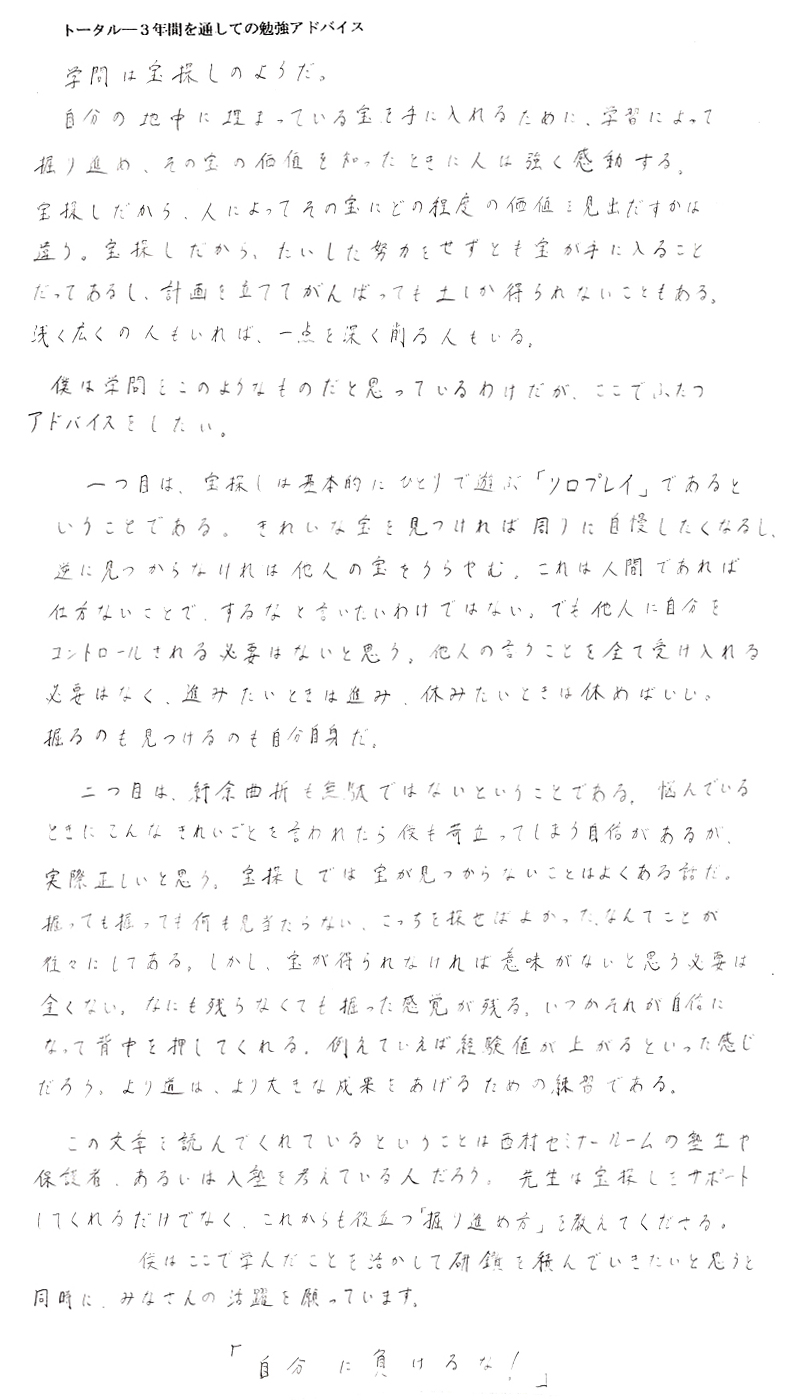 トータル―３年間を通しての勉強アドバイス
学問は宝探しのようだ。
自分の地中に埋まっている宝を手に入れるために、学習によって
掘り進め、その宝の価値を知ったときに人は強く感動する。
宝探しだから、人によってその宝にどの程度の価値を見出だすかは
違う。宝探しだから、たいした努力をせずとも宝が手に入ること
だってあるし、計画を立ててがんばっても土しか得られないこともある。
浅く広くの人もいれば、一点を深く削る人もいる。
僕は学問をこのようなものだと思っているわけだが、ここでふたつ
アドバイスをしたい。
一つ目は、宝探しは基本的にひとりで遊ぶ「ソロプレイ」であると
いうことである。きれいな宝を見つければ周りに自慢したくなるし、
逆に見つからなければ他人の宝をうらやむ。これは人間であれば
仕方ないことで、するなと言いたいわけではない。でも他人に自分を
コントロールされる必要はないと思う。他人の言うことを全て受け入れる
必要はなく、進みたいときは進み、休みたいときは休めばいい。
掘るのも見つけるのも自分自身だ。
二つ目は、紆余曲折も無駄ではないということである。悩んでいる
ときにこんなきれいごとを言われたら僕も苛立ってしまう自信があるが、
実際正しいと思う。宝探しでは宝が見つからないことはよくある話だ。
掘っても掘っても何も見当たらない、こっちを探せばよかった、なんてことが
往々にしてある。しかし、宝が得られなければ意味がないと思う必要は
全くない。なにも残らなくても掘った感覚が残る。いつかそれが自信に
なって背中を押してくれる。例えていえば経験値が上がるといった感じ
だろう。より道は、より大きな成果をあげるための練習である。
この文章を読んでくれているということは西村セミナールームの塾生や
保護者、あるいは入塾を考えている人だろう。先生は宝探しをサポート
してくれるだけでなく、これからも役立つ「掘り進め方」を教えてくださる。
僕はここで学んだことを活かして研鑽を積んでいきたいと思うと
同時に、みなさんの活躍を願っています。
「自分に負けるな！」